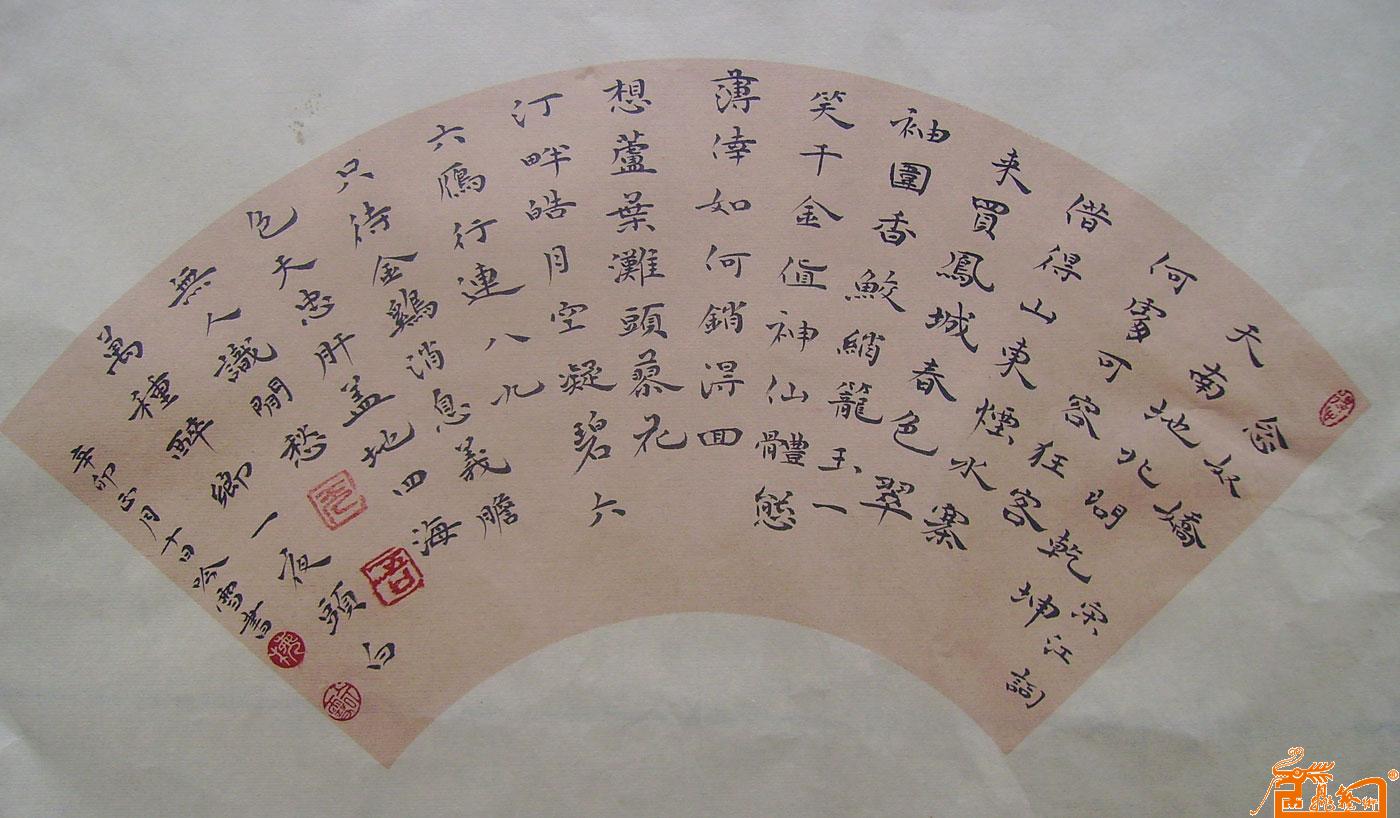 念奴嬌 宋江詞
天南地北問乾坤
何處可容狂客
借得山東煙水寨
來買鳳城春色翠
袖圍香鮫綃籠玉一
笑千金值神仙體態
薄倖如何銷得回
想蘆葉灘頭蓼花
汀畔皓月空凝碧六
六鴈行連八九
只待金鷄消息義膽
色天忠肝蓋地四海
無人識閒愁
萬種醉鄉一夜頭白
辛卯正月十日吟雪書